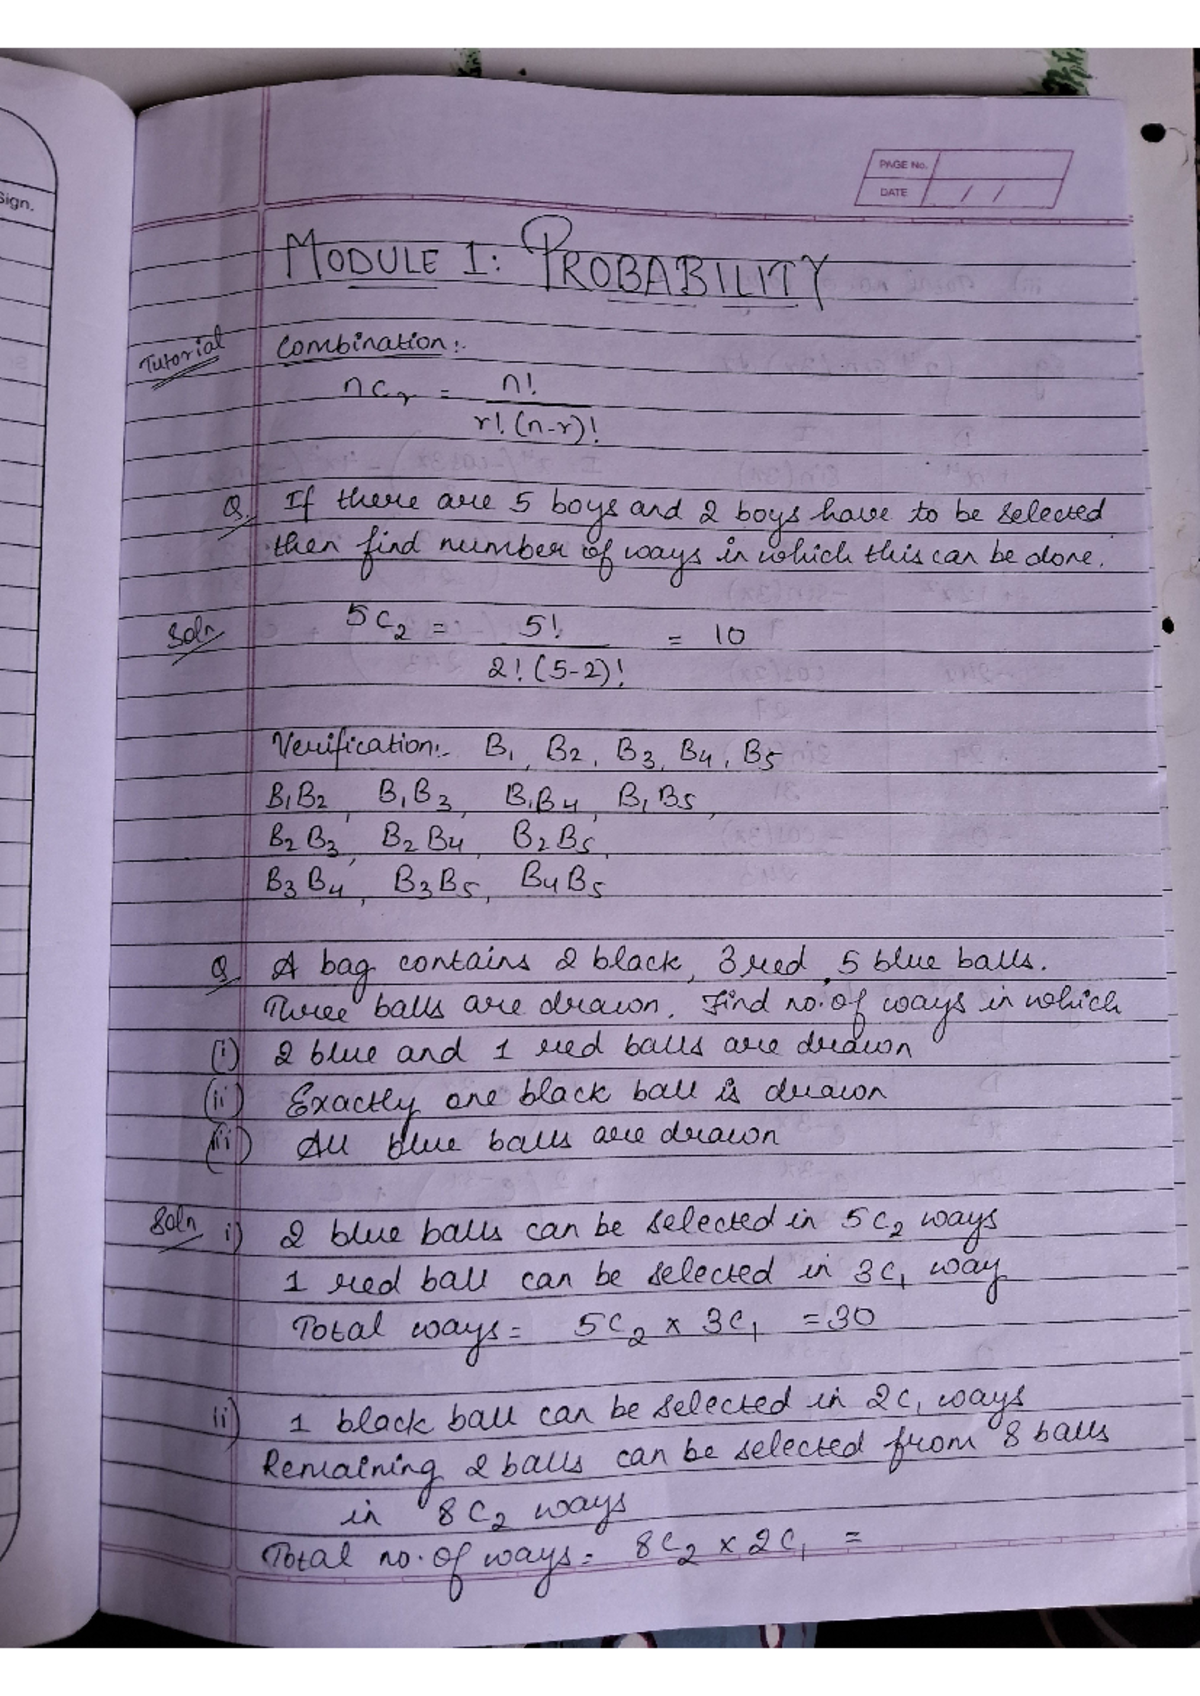 Sign.
PAGE No.
DATE / /
MODULE 1: PROBABILITY
Tutorial Combination:-
nCr = n!
r!(n-r)!
Q. If there are 5 boys and 2 boys have to be selected
then find number of ways in which this can be done.
Soln 5C2 = 5! = 10
2!(5-2)!
Verification:- B1, B2, B3, B4, B5
B1B2, B1B3, B1B4, B1B5,
B2B3, B2B4, B2B5,
B3B4, B3B5, B4B5
Q. A bag contains 2 black, 3 red, 5 blue balls.
Three balls are drawn. Find no. of ways in which
(i) 2 blue and 1 red balls are drawn
(ii) Exactly one black ball is drawn
(iii) All blue balls are drawn
Soln i) 2 blue balls can be selected in 5C2 ways
1 red ball can be selected in 3C1 way
Total ways = 5C2 x 3C1 = 30
ii) 1 black ball can be selected in 2C1 ways
Remaining 2 balls can be selected from 8 balls
in 8C2 ways
Total no. of ways = 8C2 x 2C1 =